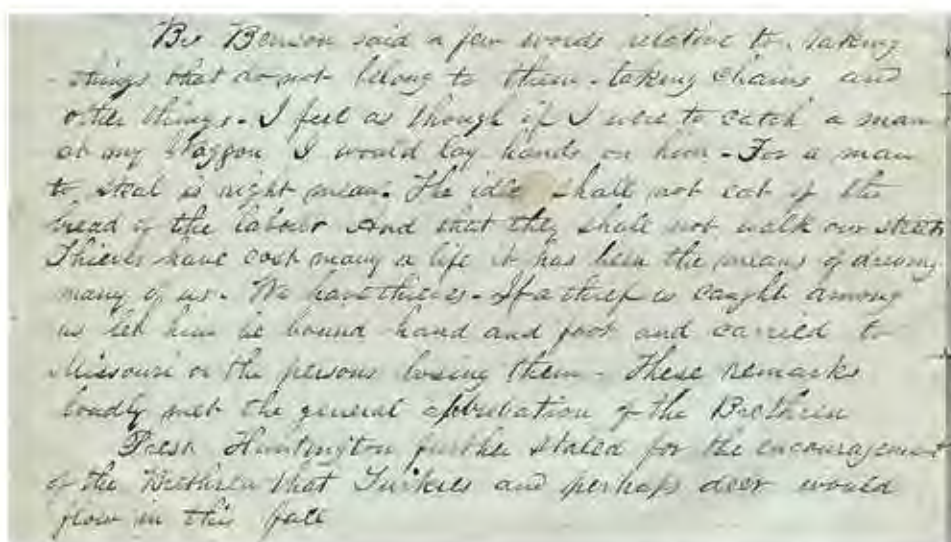 Br Benson said a few words relative to taking
things that do not belong to them - taking chains and
other things. I feel as though if I were to catch a man
at my Waggon I would lay hands on him - For a man
to steal is right mean. The idle shall not eat of the
bread of the labour And that they shall not walk our streets
Thieves have cost many a life it has been the means of driving
many of us. We have thieves - If a thief is caught among
us let him be bound hand and foot and carried to
Missouri or the persons losing them - These remarks
loudly met the general approbation of the Brethren
Prest Huntington further stated for the encouragement
of the Brethren that Turkies and perhaps deer would
flow in this fall